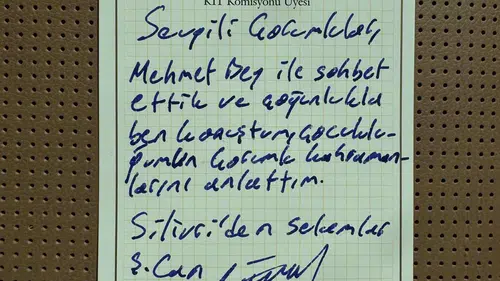 KİT Komisyonu Üyesi
Sevgili Çocuklar,
Mehmet Bey ile sohbet
ettik ve çoğunlukla
ben konuştum, çocuklu-
ğumun kahraman-
larını anlattım.
Silivri'den selamlar
Ş. Can